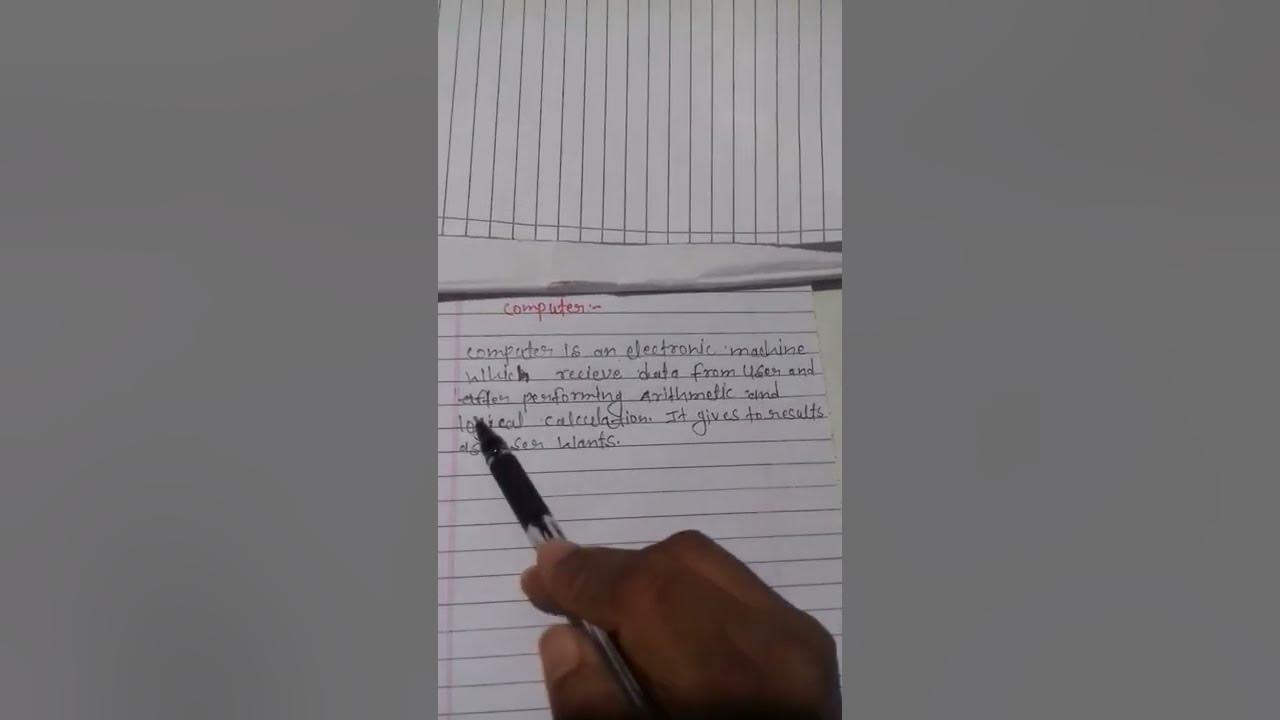 computer:-
computer is an electronic machine
which recieve data from user and
after performing arithmetic and
logical calculation. It gives to results
as user wants.